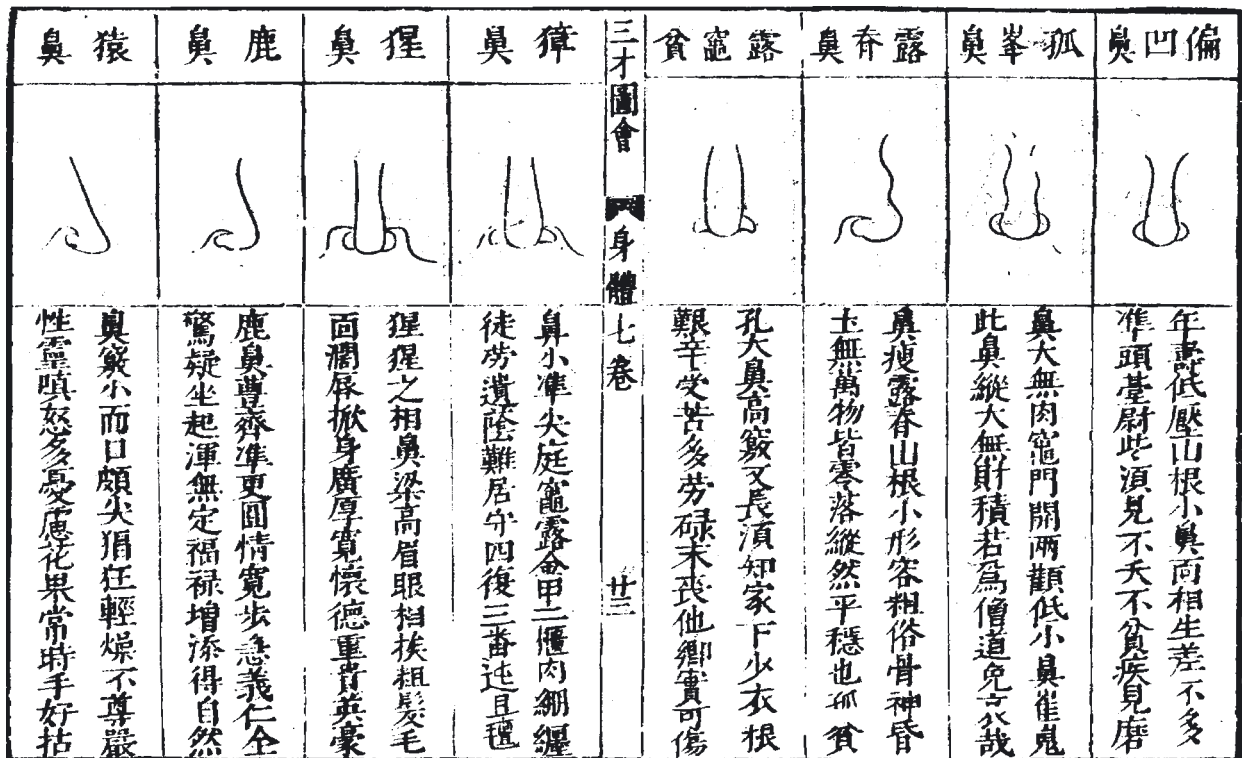 偏凹鼻
年壽低壓山根小鼻面相生差不多
準頭臺尉些須見不夭不貧疾見磨
孤峯鼻
鼻大無肉竈門開兩顴低小鼻崔嵬
此鼻縱大無財積若爲僧道免哉
露脊鼻
鼻瘦露脊山根小形容粗俗骨神昏
土無萬物皆零落縱然平穩也孤貧
露竈貧
孔大鼻高竅又長須知家下少衣根
艱辛受苦多勞碌末喪他鄉實可傷
三才圖會 身體七卷 廿三
獐鼻
鼻小準尖庭竈露金甲二匽肉綳纏
徒勞遺蔭難居守四復三番迍且邅
猩鼻
猩猩之相鼻梁高眉眼相挨粗髮毛
面濶唇掀身廣厚寬懷德重貴英豪
鹿鼻
鹿鼻豐齊準更圓情寬步急義仁全
驚疑坐起渾無定福祿增添得自然
猿鼻
鼻竅小而口頗尖猖狂輕燥不尊嚴
性靈嗔怒多憂慮花果常時手好拈